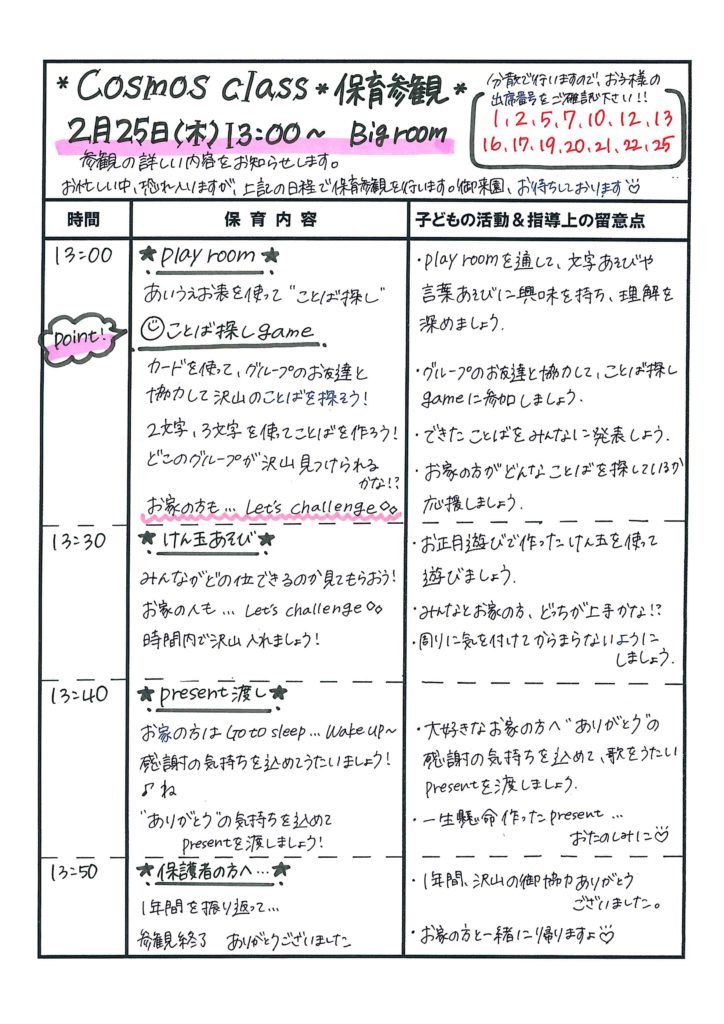 * Cosmos class * 保育参観 *
2月25日(木)13:00~ Big room
分散で行いますので、お子様の
出席番号をご確認下さい!!
1, 2, 5, 7, 10, 12, 13
16, 17, 19, 20, 21, 22, 25
参観の詳しい内容をお知らせします。
お忙しい中、恐れ入りますが、上記の日程で保育参観を行います。御来園、お待ちしております
時間
保育内容
子どもの活動&指導上の留意点
13:00
★play room★
あいうえお表を使って"ことば探し"
point!
ことば探しgame
カードを使って、グループのお友達と
協力して沢山のことばを探そう!
2文字、3文字を使ってことばを作ろう!
どこのグループが沢山見つけられる
かな!?
お家の方も… Let's challenge
・play roomを通して、文字あそびや
言葉あそびに興味を持ち、理解を
深めましょう.
・グループのお友達と協力して、ことば探し
gameに参加しましょう.
・できたことばをみんなに発表しよう.
・お家の方がどんなことばを探しているか
応援しましょう.
13:30
★けん玉あそび★
みんながどの位できるのか見てもらおう!
お家の人も… Let's challenge
時間内で沢山入れましょう!
・お正月遊びで作ったけん玉を使って
遊びましょう.
・みんなとお家の方、どっちが上手かな!?
・周りに気を付けてからまらないように
しましょう.
13:40
★present渡し★
お家の方はGo to sleep… Wake up~
感謝の気持ちを込めてうたいましょう!
♪ね
"ありがとう"の気持ちを込めて
presentを渡しましょう!
・大好きなお家の方へ"ありがとう"の
感謝の気持ちを込めて、歌をうたい
presentを渡しましょう.
・一生懸命作ったpresent…
おたのしみに♡
13:50
★保護者の方へ…★
1年間を振り返って…
参観終了 ありがとうございました
・1年間、沢山の御協力ありがとう
ございました。
・お家の方と一緒に帰りますよ♡